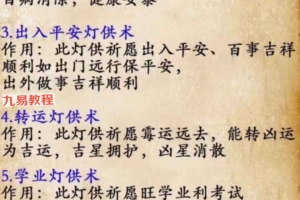 百病消除，健康安泰
3.出入平安灯供术
作用：此灯供祈愿出入平安、百事吉祥
顺利如出门远行保平安，
出外做事吉祥顺利
九易教程
4.转运灯供术
作用：此灯供祈愿霉运远去，能转凶运
为吉运，吉星拥护，凶星消散
5.学业灯供术
作用：此灯供祈愿旺学业利考试